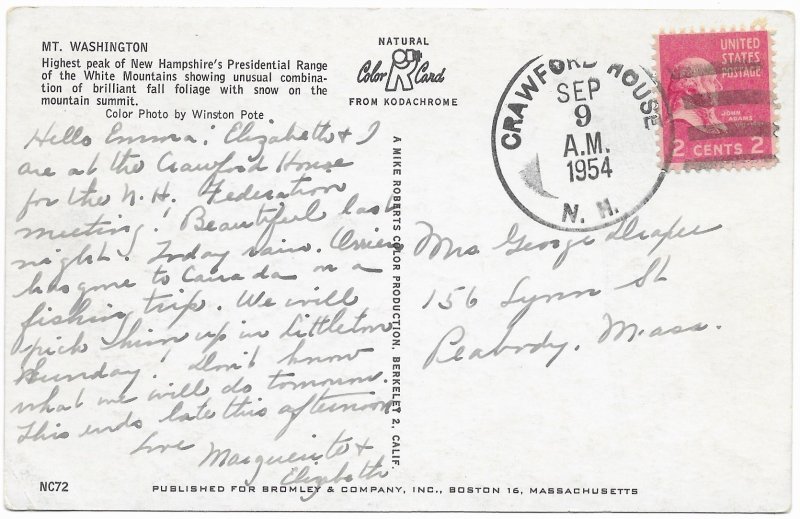 MT. WASHINGTON
Highest peak of New Hampshire's Presidential Range
of the White Mountains showing unusual combina-
tion of brilliant fall foliage with snow on the
mountain summit.
Color Photo by Winston Pote
NATURAL
Color Card
FROM KODACHROME
CRAWFORD HOUSE
SEP
9
A.M.
1954
N. H.
UNITED
STATES
POSTAGE
JOHN
ADAMS
2 CENTS 2
Hello Emma! Elizabeth & I
are at the Crawford House
for the N.H. Federation
meeting! Beautiful last
night! Today rain.
has gone to Canada on a
fishing trip. We will
pick him up in Littleton
Sunday! Don't know
what we will do tomorrow.
This ends late this afternoon
Love
Marguerite &
Elizabeth
A MIKE ROBERTS COLOR PRODUCTION, BERKELEY 2, CALIF.
Mrs George Draper
156 Lynn St
Peabody, Mass.
NC72
PUBLISHED FOR BROMLEY & COMPANY, INC., BOSTON 16, MASSACHUSETTS